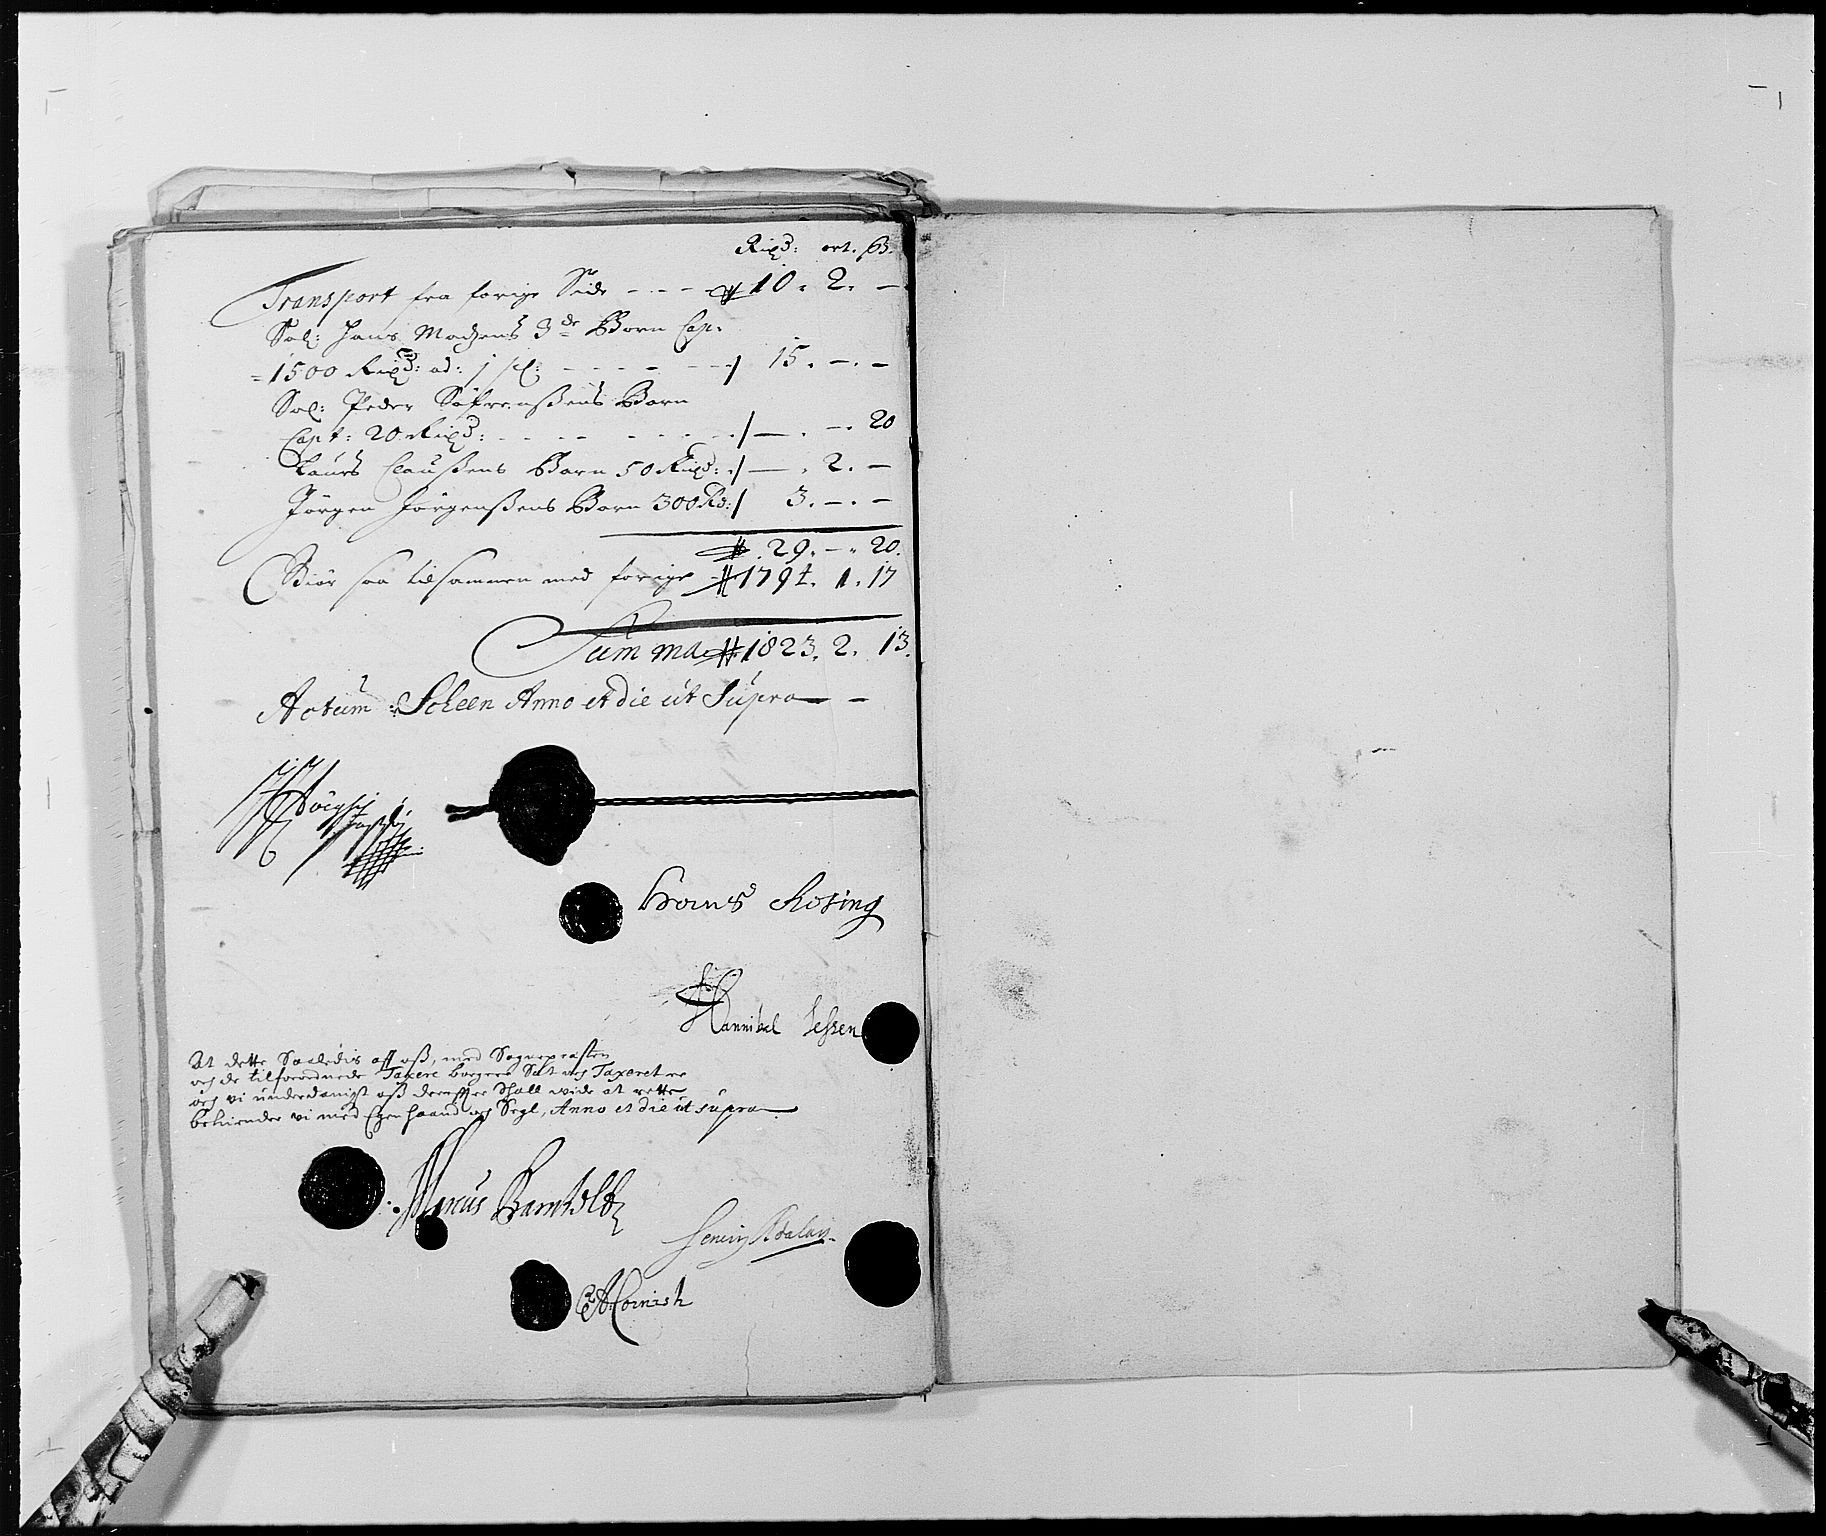 Rixd: ort. ß.
Transport fra forige Side - - - - # 10. 2. -
Sal: Hans Madzens 3de Børn Cap:
1500 Rixd: ad: 1 pC: - - - - - / 15. -. -
Sal: Peder Søfrenßens Børn
Capt: 20 Rixd: - - - - - - - / -. -. 20
Laurs Claußens Børn 50 Rixd: / -. 2. -
Jørgen Jørgenßens Børn 300 Rd: / 3. -. -
# 29. -. 20.
Giør saa tilsammen med forige # 1794. 1. 17
Summa # 1823. 2. 13.
Actum Scheen Anno et die ut Supra - -
Hans Rosing
Hannibal Jeßen
At dette Saaledis aff oß, med Sognepræsten
och de tilforordnede Taxere borgere Sat och Taxeret er
och vi underdanigst oß dereffter Skall vide at rette
bekiender vi med Egen haand och Segl, Anno et die ut supra
Cornish